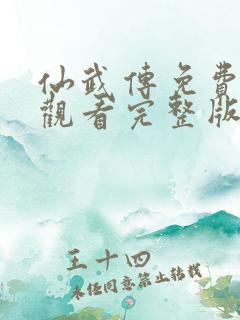 仙武傳免費
觀看完整版
王十四
未经同意禁止转载